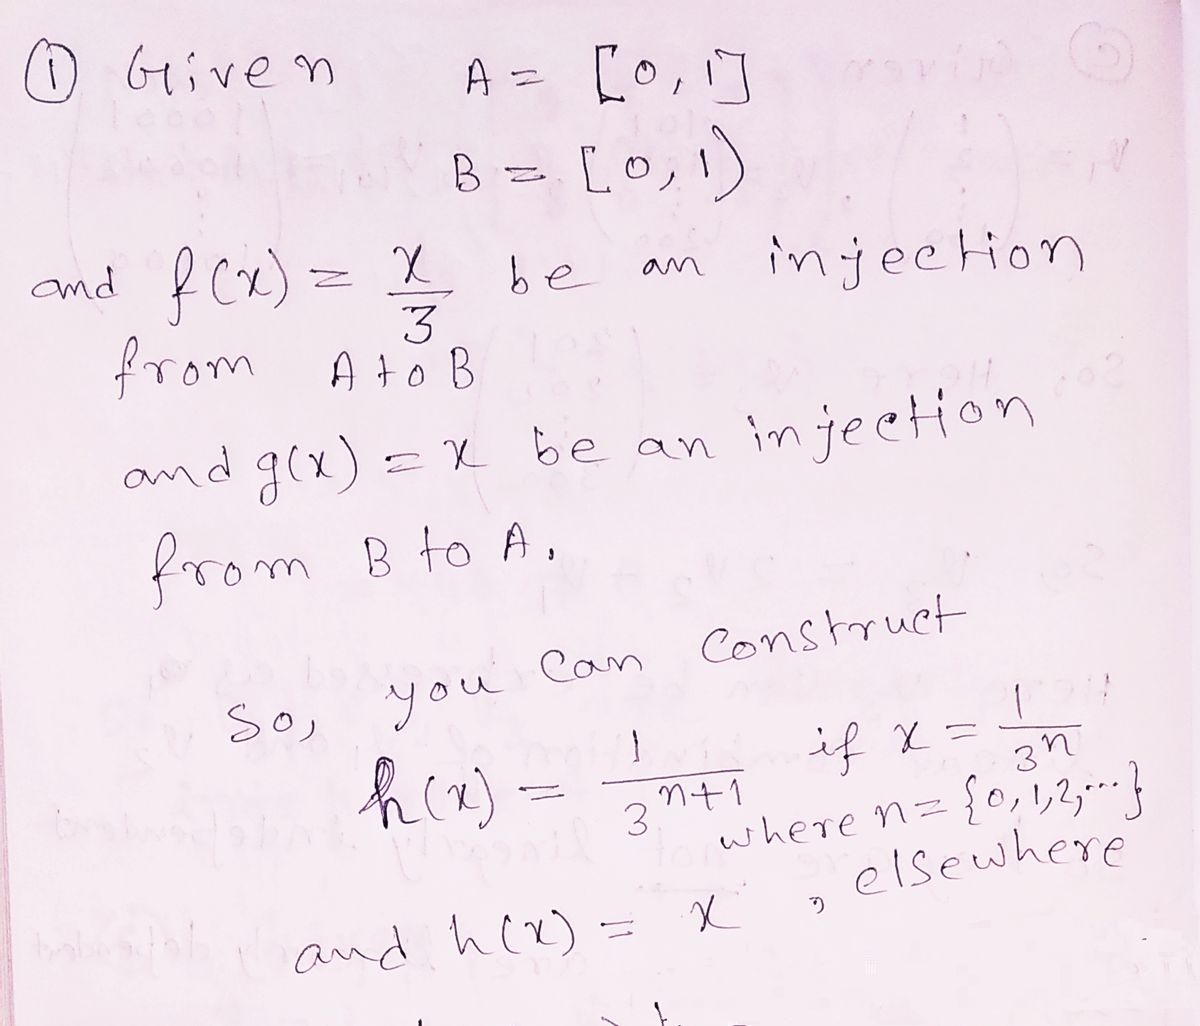 ① Given A = [0, 1]
B = [0, 1)
and f(x) = x/3 be an injection
from A to B
and g(x) = x be an injection
from B to A.
So, you can construct
h(x) = 1/3^(n+1) if x = 1/3^n
where n = {0, 1, 2, ...}
and h(x) = x , elsewhere